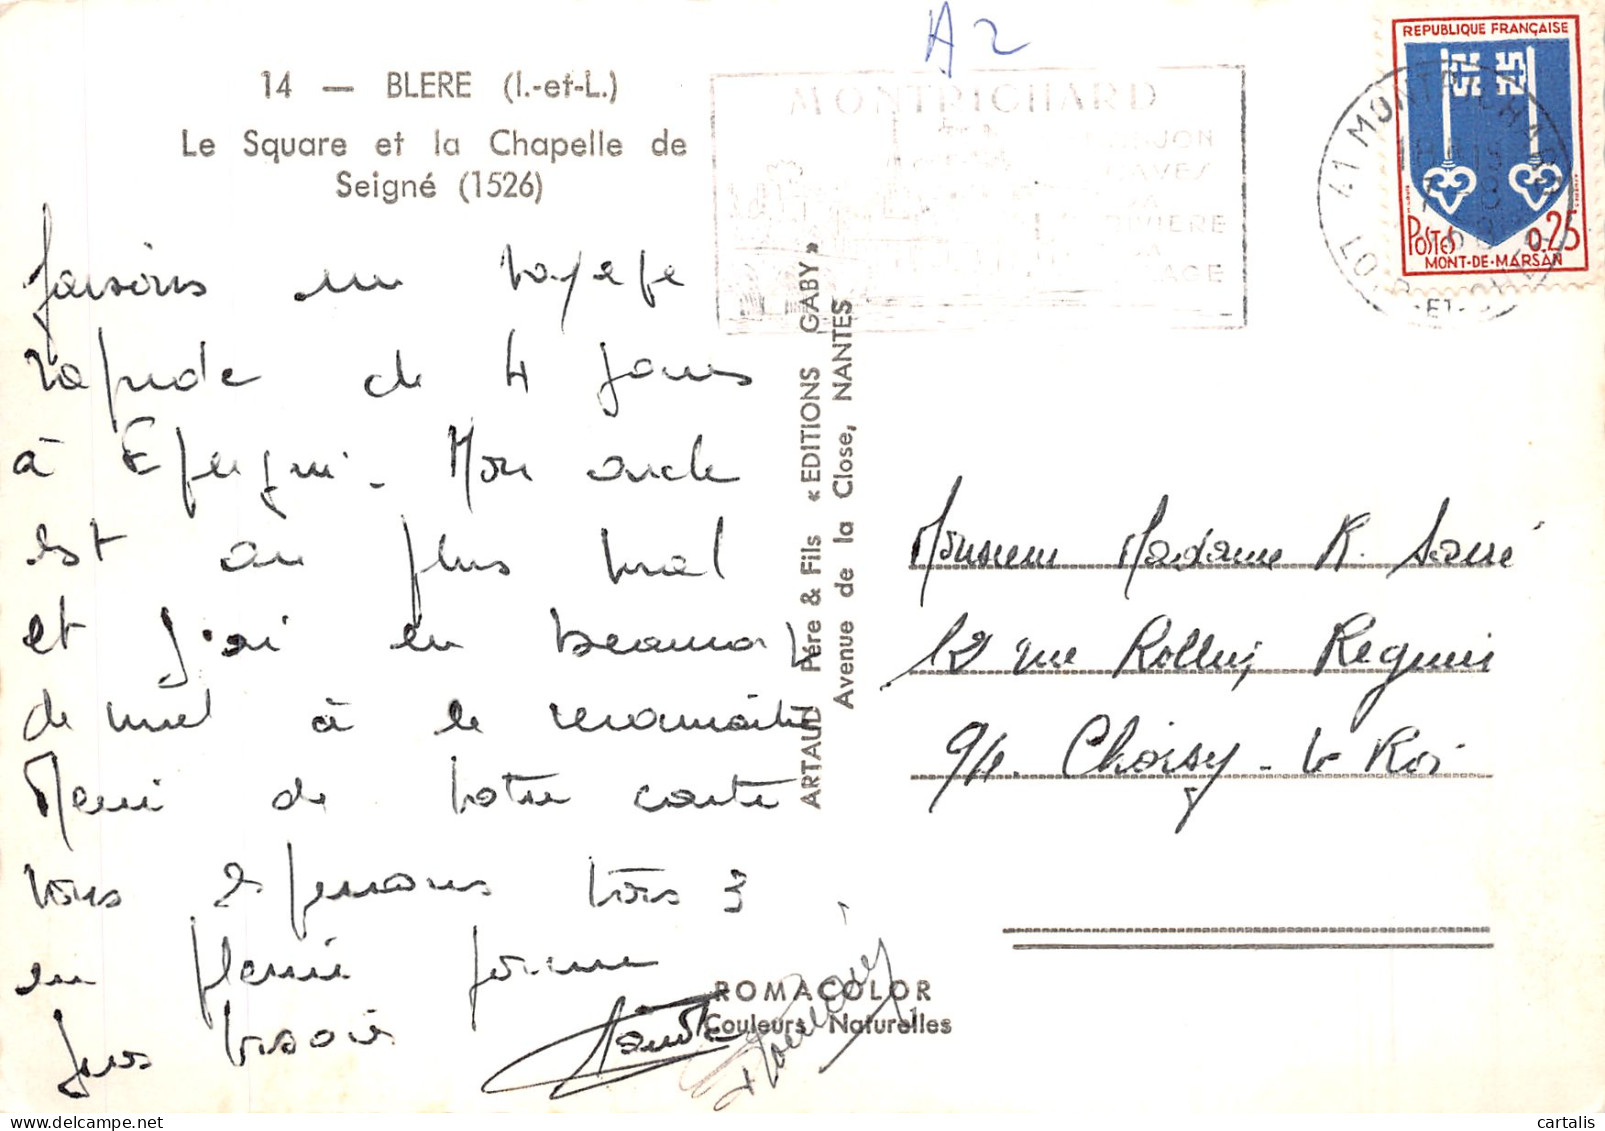 A2
14 — BLERE (I.-et-L.)
Le Square et la Chapelle de
Seigné (1526)
MONTRICHARD
REPUBLIQUE FRANÇAISE
POSTES 0.25
MONT-DE-MARSAN
41 MONTRICHARD
LOIR-ET-CHER
faisons un voyage
rapide de 4 jours
à Epeigné. Mon oncle
est au plus mal
et j'ai eu beaucoup
de mal à le reconnaître
Merci de votre carte
vous espérons tous 3
en pleine forme
gros bisous
ARTAUD Père & Fils «EDITIONS GABY»
Avenue de la Close, NANTES
Monsieur Madame R.
12 rue Rollin Regnier
94. Choisy-le Roi
ROMACOLOR
Couleurs Naturelles
cartalis